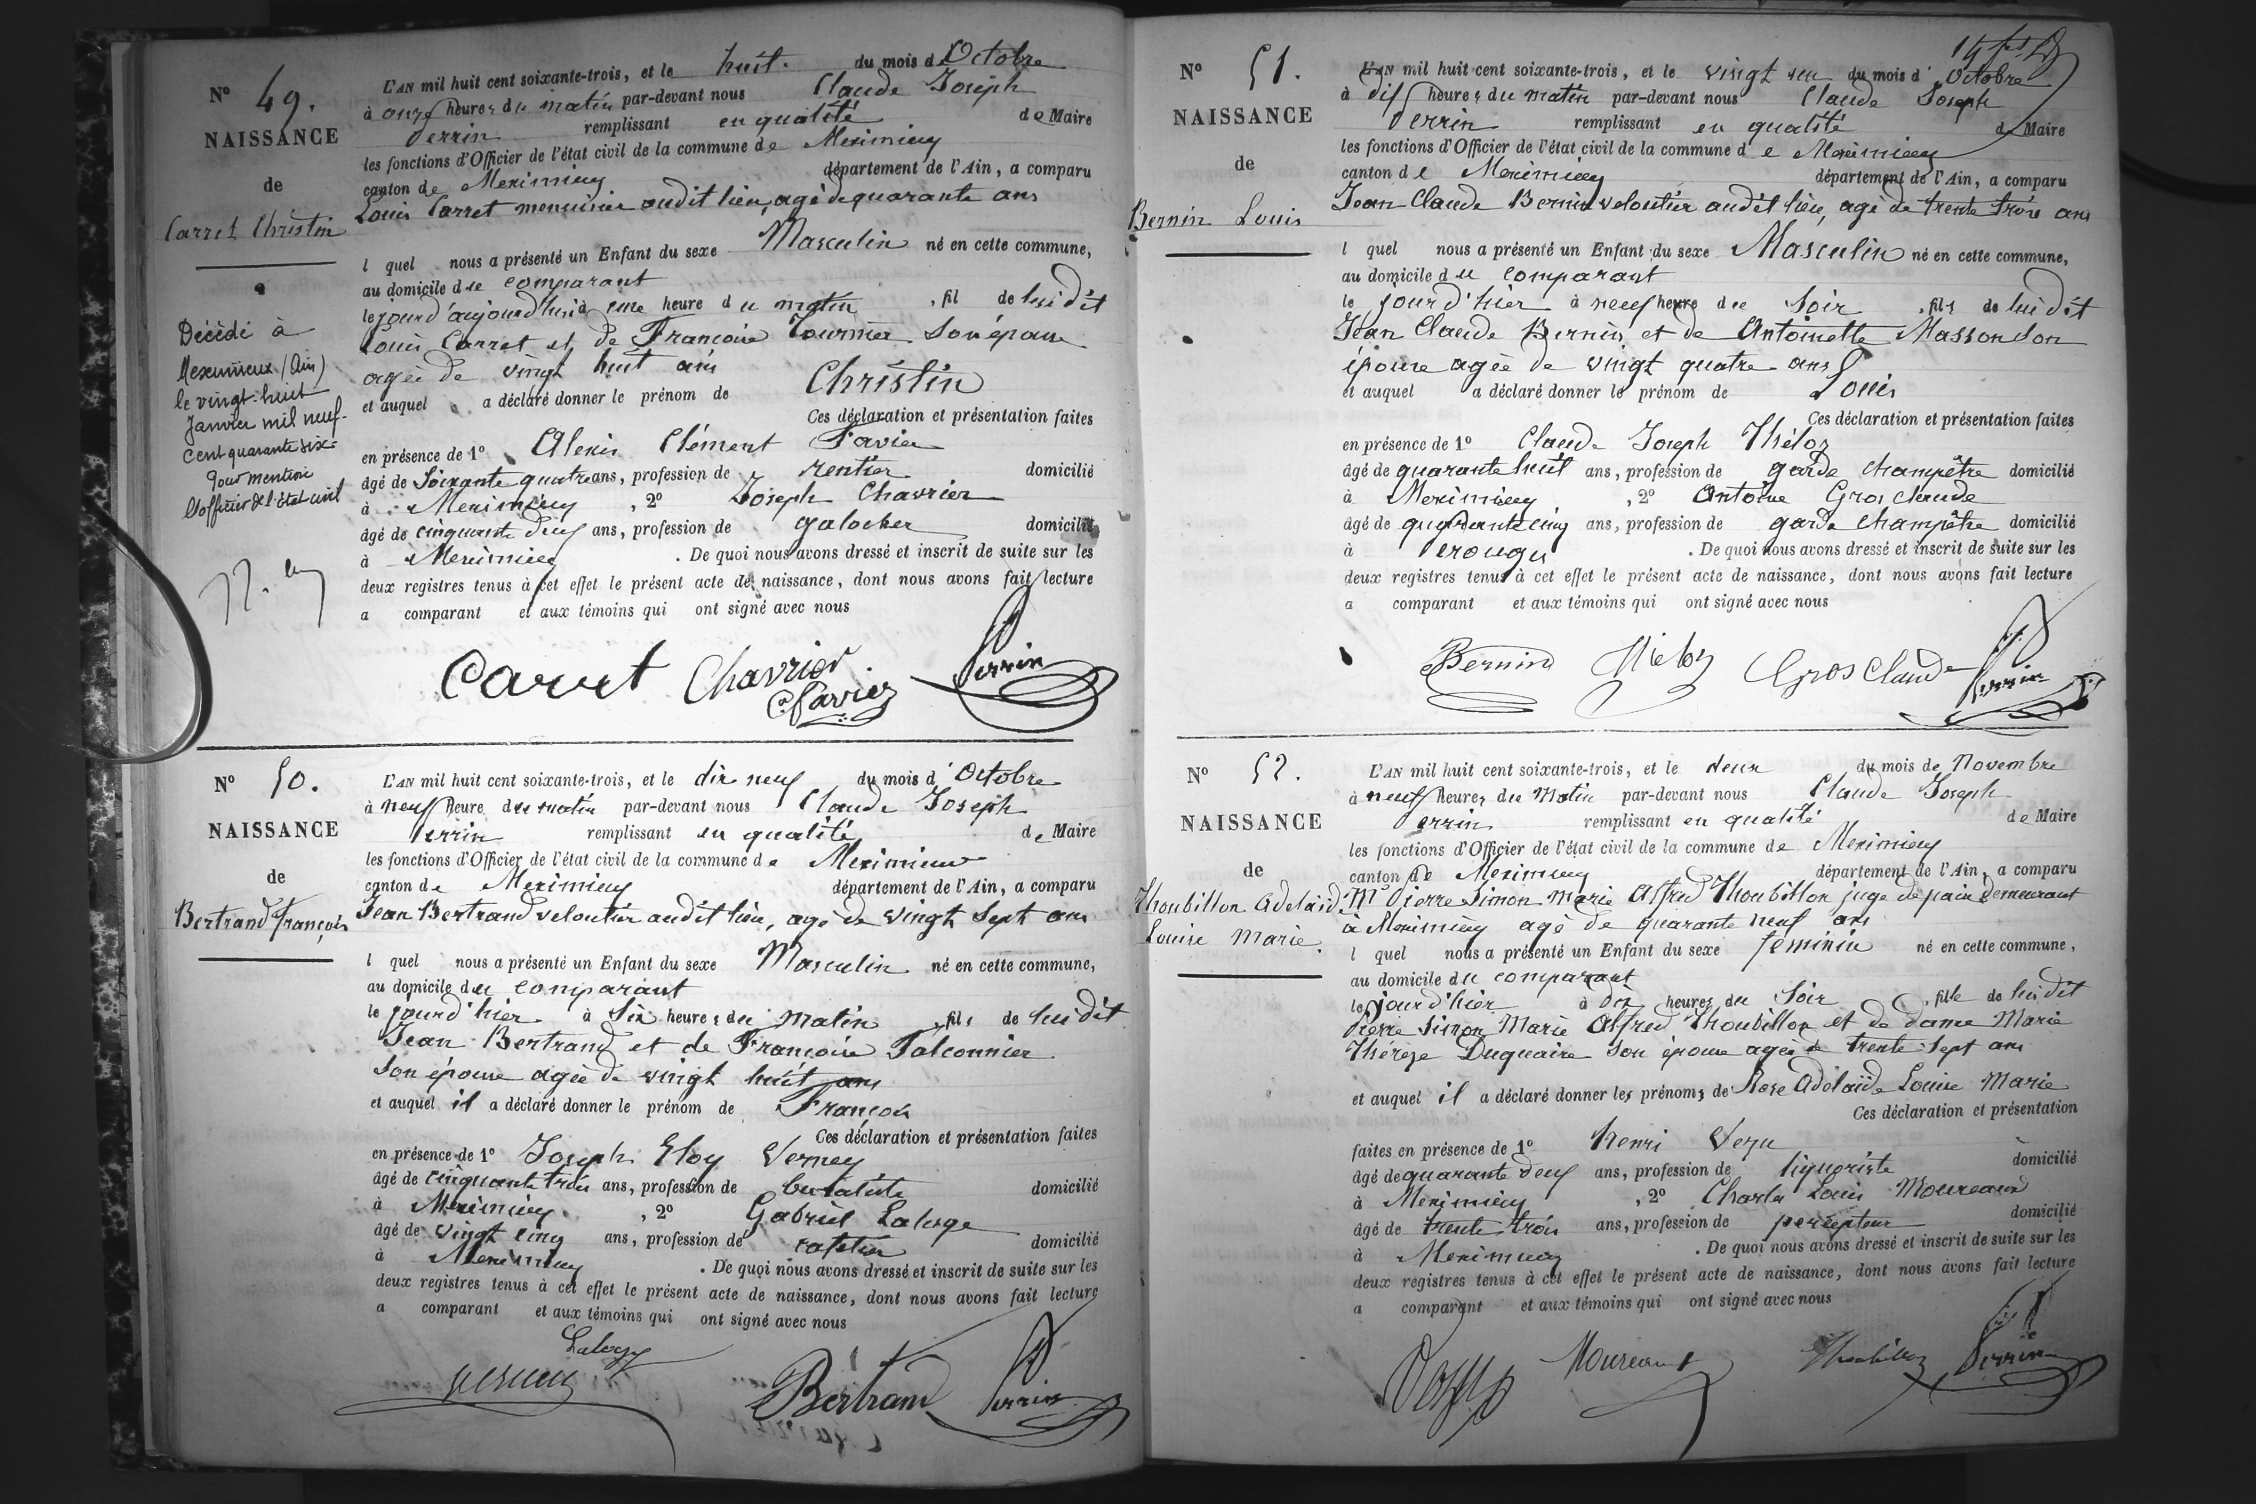 N° 49.
NAISSANCE
de
Carret Christin
Décédé à
Meximieux (Ain)
le vingt-huit
Janvier mil neuf-
cent quarante six
Pour mention
L'officier de l'état civil
L'AN mil huit cent soixante-trois, et le huit du mois d'Octobre
à onze heures du matin par-devant nous Claude Joseph
Perrin remplissant en qualité de Maire
les fonctions d'Officier de l'état civil de la commune de Meximieux
canton de Meximieux département de l'Ain, a comparu
Louis Carret menuisier audit lieu, agé de quarante ans
l quel nous a présenté un Enfant du sexe Masculin né en cette commune,
au domicile du comparant
le jourd'aujourd'hui à une heure du matin, fil de lui dit
Louis Carret et de Françoise Tournier son épouse
agée de vingt huit ans
et auquel a déclaré donner le prénom de Christin
Ces déclaration et présentation faites
en présence de 1° Alexis Clément Favier
âgé de Soixante quatre ans, profession de rentier domicilié
à Meximieux, 2° Joseph Chavrier
âgé de cinquante deux ans, profession de galocher domicilié
à Meximieux. De quoi nous avons dressé et inscrit de suite sur les
deux registres tenus à cet effet le présent acte de naissance, dont nous avons fait lecture
a comparant et aux témoins qui ont signé avec nous
Carret Chavrier Perrin
C Favier
N° 50.
NAISSANCE
de
Bertrand François
L'AN mil huit cent soixante-trois, et le dix neuf du mois d'Octobre
à neuf heure du matin par-devant nous Claude Joseph
Perrin remplissant en qualité de Maire
les fonctions d'Officier de l'état civil de la commune de Meximieux
canton de Meximieux département de l'Ain, a comparu
Jean Bertrand veloutier audit lieu, agé de vingt sept ans
l quel nous a présenté un Enfant du sexe Masculin né en cette commune,
au domicile du comparant
le jourd'hier à Six heures du matin, fils de lui dit
Jean Bertrand et de Françoise Falconnier
Son épouse agée de vingt huit ans
et auquel il a déclaré donner le prénom de François
Ces déclaration et présentation faites
en présence de 1° Joseph Eloy Verney
âgé de cinquante trois ans, profession de buraliste domicilié
à Meximieux, 2° Gabriel Laloge
âgé de vingt cinq ans, profession de cafetier domicilié
à Meximieux. De quoi nous avons dressé et inscrit de suite sur les
deux registres tenus à cet effet le présent acte de naissance, dont nous avons fait lecture
a comparant et aux témoins qui ont signé avec nous
Laloge
Verney Bertrand Perrin
N° 51.
NAISSANCE
de
Bernin Louis
L'AN mil huit cent soixante-trois, et le vingt un du mois d'Octobre
à dix heures du matin par-devant nous Claude Joseph
Perrin remplissant en qualité d Maire
les fonctions d'Officier de l'état civil de la commune de Meximieux
canton de Meximieux département de l'Ain, a comparu
Jean Claude Bernin veloutier audit lieu, agé de trente trois ans
l quel nous a présenté un Enfant du sexe Masculin né en cette commune,
au domicile du comparant
le jour d'hier à neuf heure du Soir, fils de lui dit
Jean Claude Bernin et de Antoinette Masson son
épouse agée de vingt quatre ans
et auquel a déclaré donner le prénom de Louis
Ces déclaration et présentation faites
en présence de 1° Claude Joseph Théloz
âgé de quarante huit ans, profession de garde champêtre domicilié
à Meximieux, 2° Antoine Gros claude
âgé de quarante cinq ans, profession de garde champêtre domicilié
à Perouges. De quoi nous avons dressé et inscrit de suite sur les
deux registres tenus à cet effet le présent acte de naissance, dont nous avons fait lecture
a comparant et aux témoins qui ont signé avec nous
Bernin Théloz Gros Claude Perrin
N° 52.
NAISSANCE
de
Thoubillon Adelaïde
Louise Marie.
L'AN mil huit cent soixante-trois, et le deux du mois de Novembre
à neuf heures du Matin par-devant nous Claude Joseph
Perrin remplissant en qualité de Maire
les fonctions d'Officier de l'état civil de la commune de Meximieux
canton de Meximieux département de l'Ain, a comparu
Mr Pierre Simon Marie Alfred Thoubillon juge de paix demeurant
à Meximieux agé de quarante neuf ans
l quel nous a présenté un Enfant du sexe feminin né en cette commune,
au domicile du comparant
le jourd'hier à dix heures du Soir, fille de lui dit
Pierre Simon Marie Alfred Thoubillon et de dame Marie
Thérèze Duquaire son épouse agée de trente sept ans
et auquel il a déclaré donner les prénoms de Rose Adélaïde Louise Marie
Ces déclaration et présentation
faites en présence de 1° henri Vezu
âgé de quarante deux ans, profession de liquoriste domicilié
à Meximieux, 2° Charles Louis Moureaux
âgé de trente trois ans, profession de percepteur domicilié
à Meximieux. De quoi nous avons dressé et inscrit de suite sur les
deux registres tenus à cet effet le présent acte de naissance, dont nous avons fait lecture
a comparant et aux témoins qui ont signé avec nous
Moureaux Thoubillon Perrin